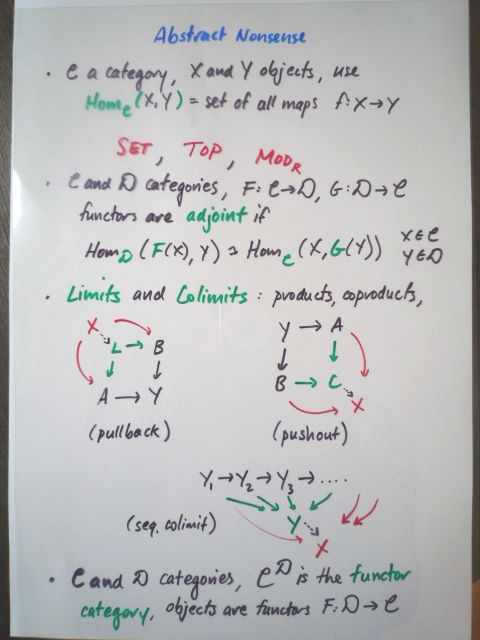 Abstract Nonsense
• C a category, X and Y objects, use
Hom_C (X,Y) = set of all maps f: X → Y
SET, TOP, MOD_R
• C and D categories, F: C → D, G: D → C
functors are adjoint if
Hom_D (F(X), Y) ≅ Hom_C (X, G(Y)) X ∈ C
Y ∈ D
• Limits and Colimits: products, coproducts,
X
L → B
A → Y
(pullback)
Y → A
B → C
X
(pushout)
Y₁ → Y₂ → Y₃ → ....
(seq. colimit)
Y
X
• C and D categories, C^D is the functor
category, objects are functors F: D → C